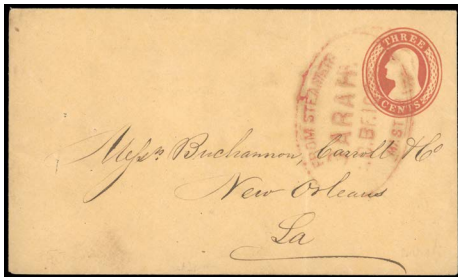 THREE
CENTS
FROM STEAMER
ARAH
Messrs Buchannon, Carroll & Co
New Orleans
La